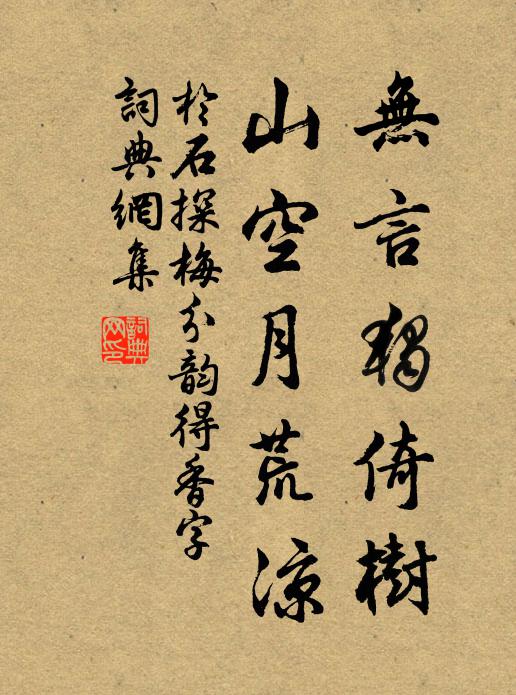 無言獨倚樹
山空月荒涼
於石探梅分韵得香字
詞典網集
詞典網印